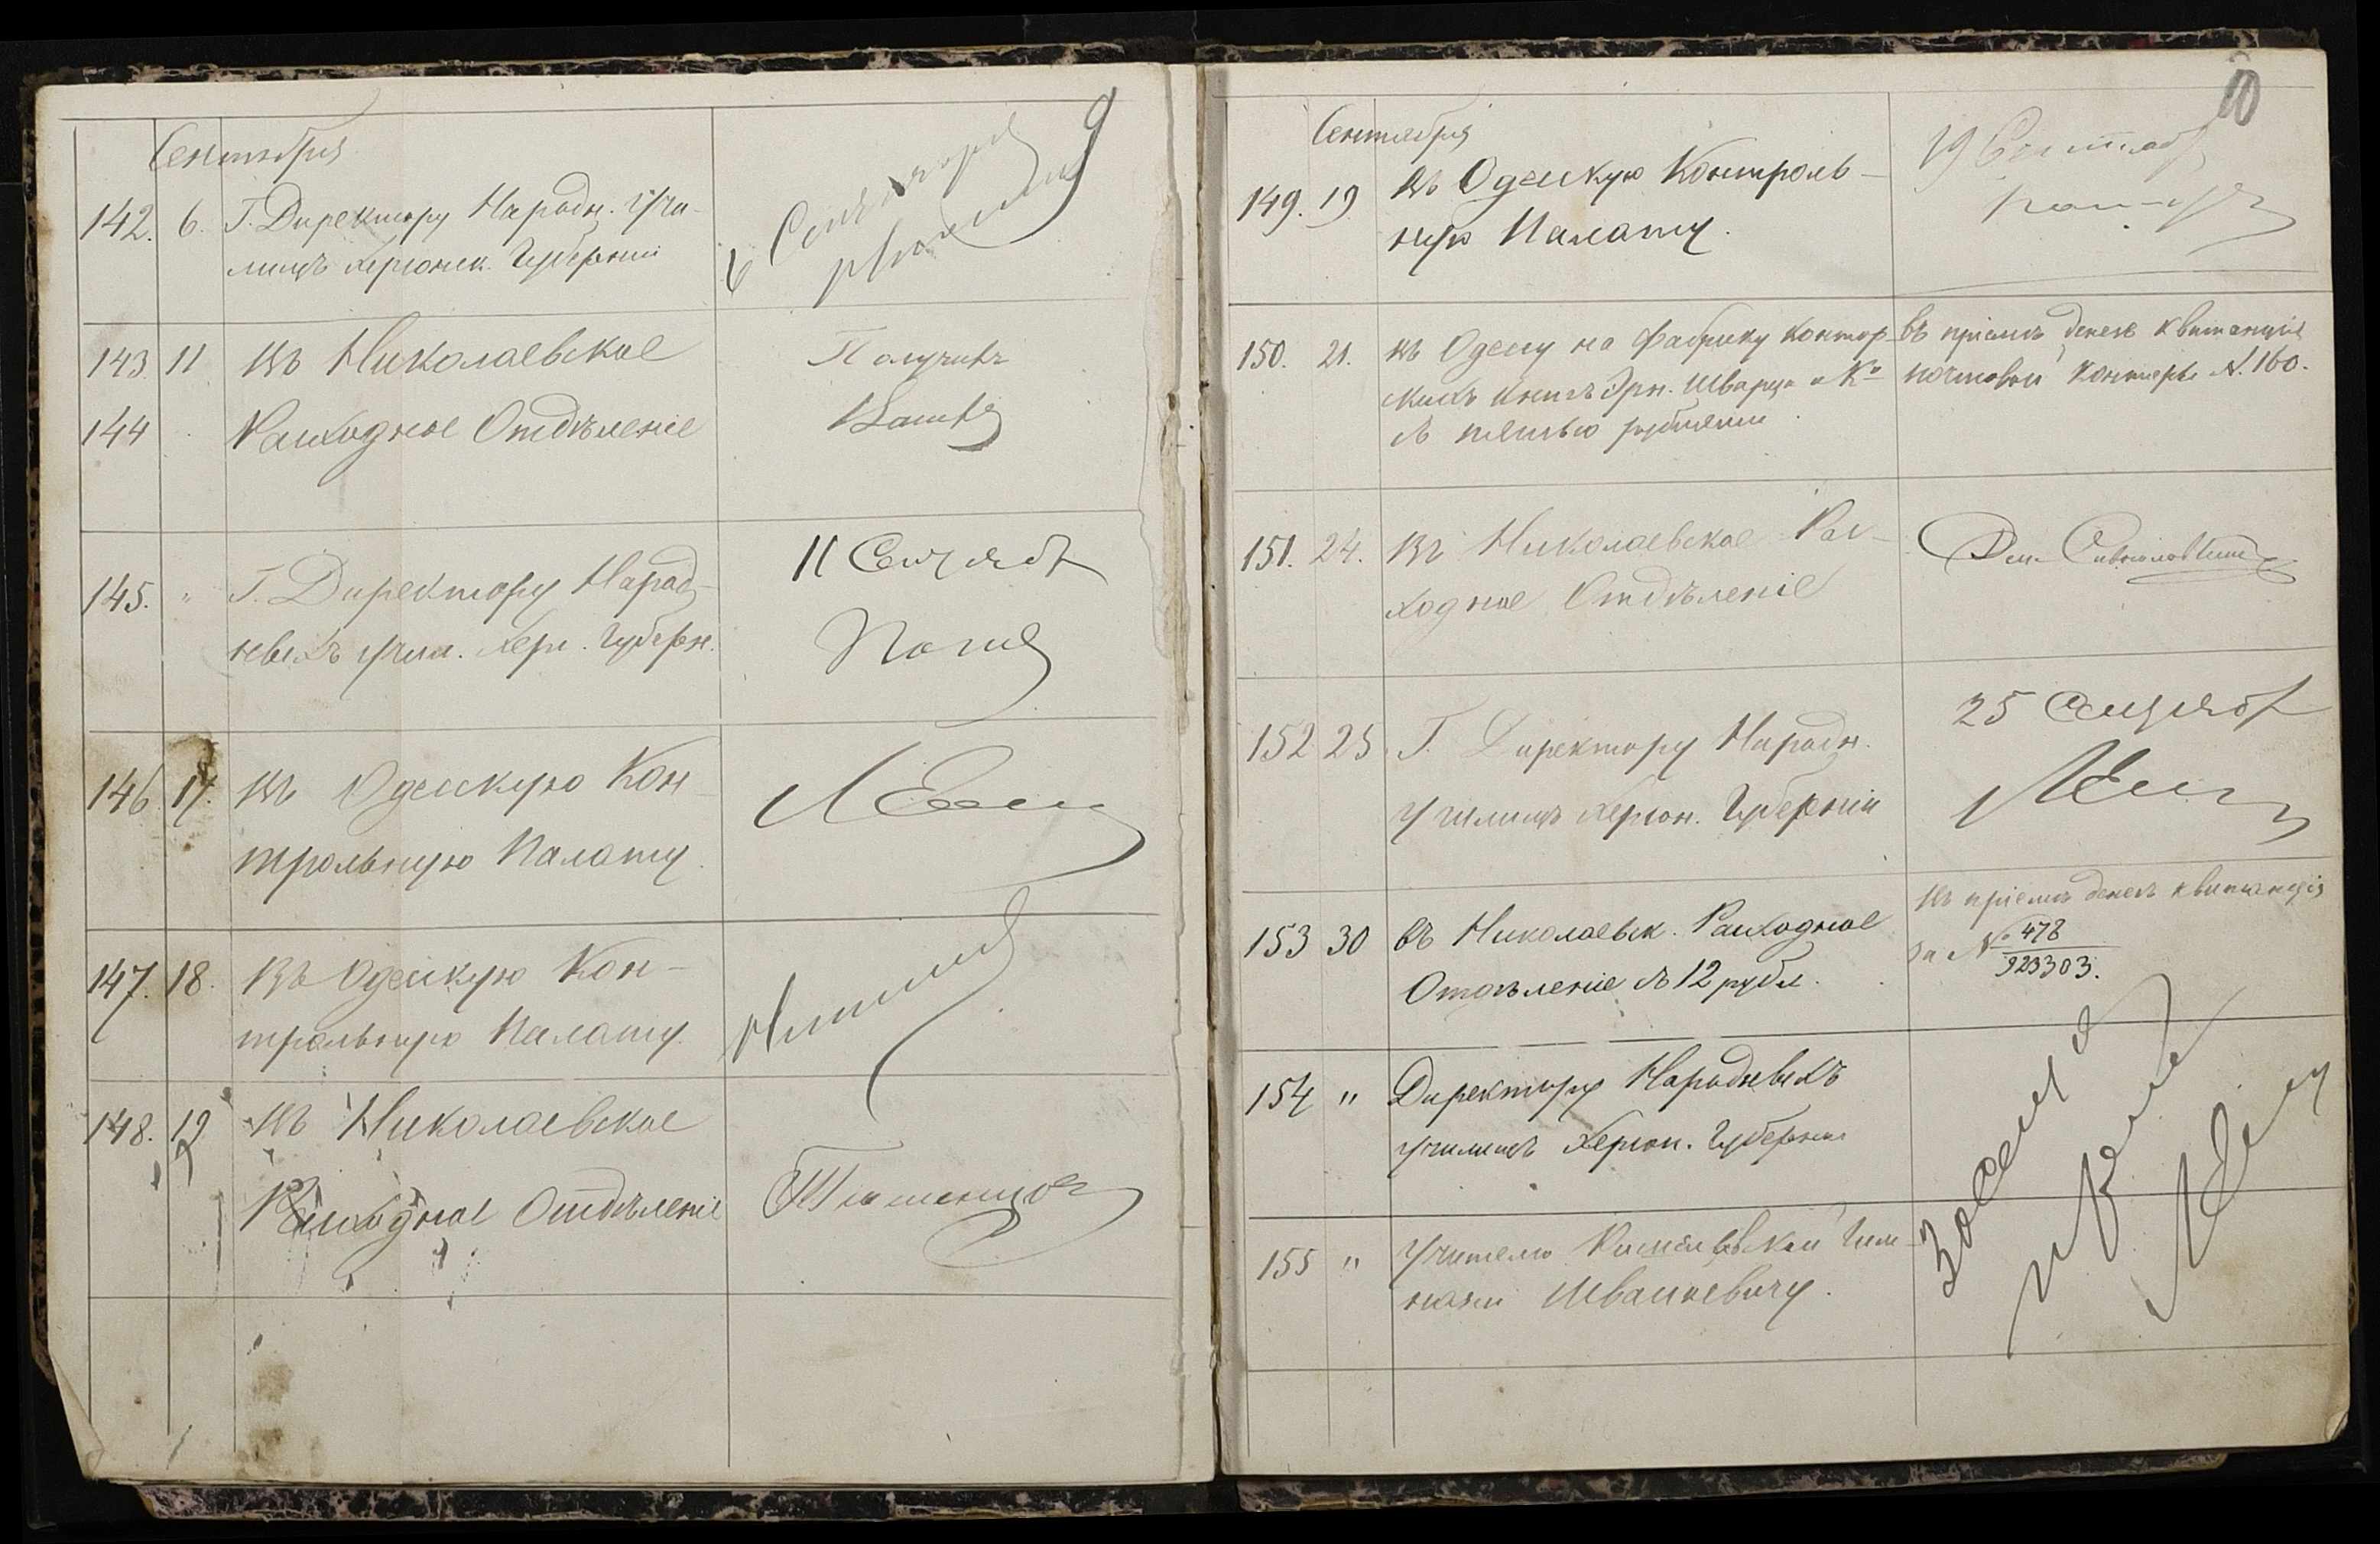 9
Сентября
142. 6. Г. Директору Народн. Учи-
лищъ Херсонск. Губерніи
6 Сентября
143 11 Въ Николаевское
144 Расходное Отдѣленіе
Получилъ
145. " Г. Директору Народ-
ныхъ учил. Херс. Губерн.
11 Сентяб
146 17. Въ Одесскую Кон-
трольную Палату.
147. 18. Въ Одесскую Кон-
трольную Палату.
148. 19 Въ Николаевское
Расходное Отдѣленіе
10
Сентября
149. 19 Въ Одесскую Контроль-
ную Палату.
19 Сентяб
150. 21. въ Одессу на Фабрику контор-
скихъ книгъ Эрн. Шварца и Ко
съ пятью рублями
въ пріемѣ денегъ квитанція
почтовой конторы №. 160.
151. 24. Въ Николаевское Рас-
ходное Отдѣленіе
152 25 Г. Директору Народн.
Училищъ Херсон. Губерніи
25 Сентяб
153 30 въ Николаевск. Расходное
Отдѣленіе съ 12 рубл.
Въ пріемѣ денегъ квитанція
за № 478
923303.
154 " Директору Народныхъ
училищъ Херсон. Губерніи
155 " Учителю Гим-
назіи
30 Сентя